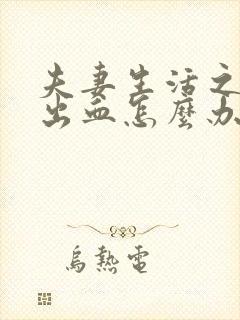 夫妻生活之
出血怎麼办
烏熱電